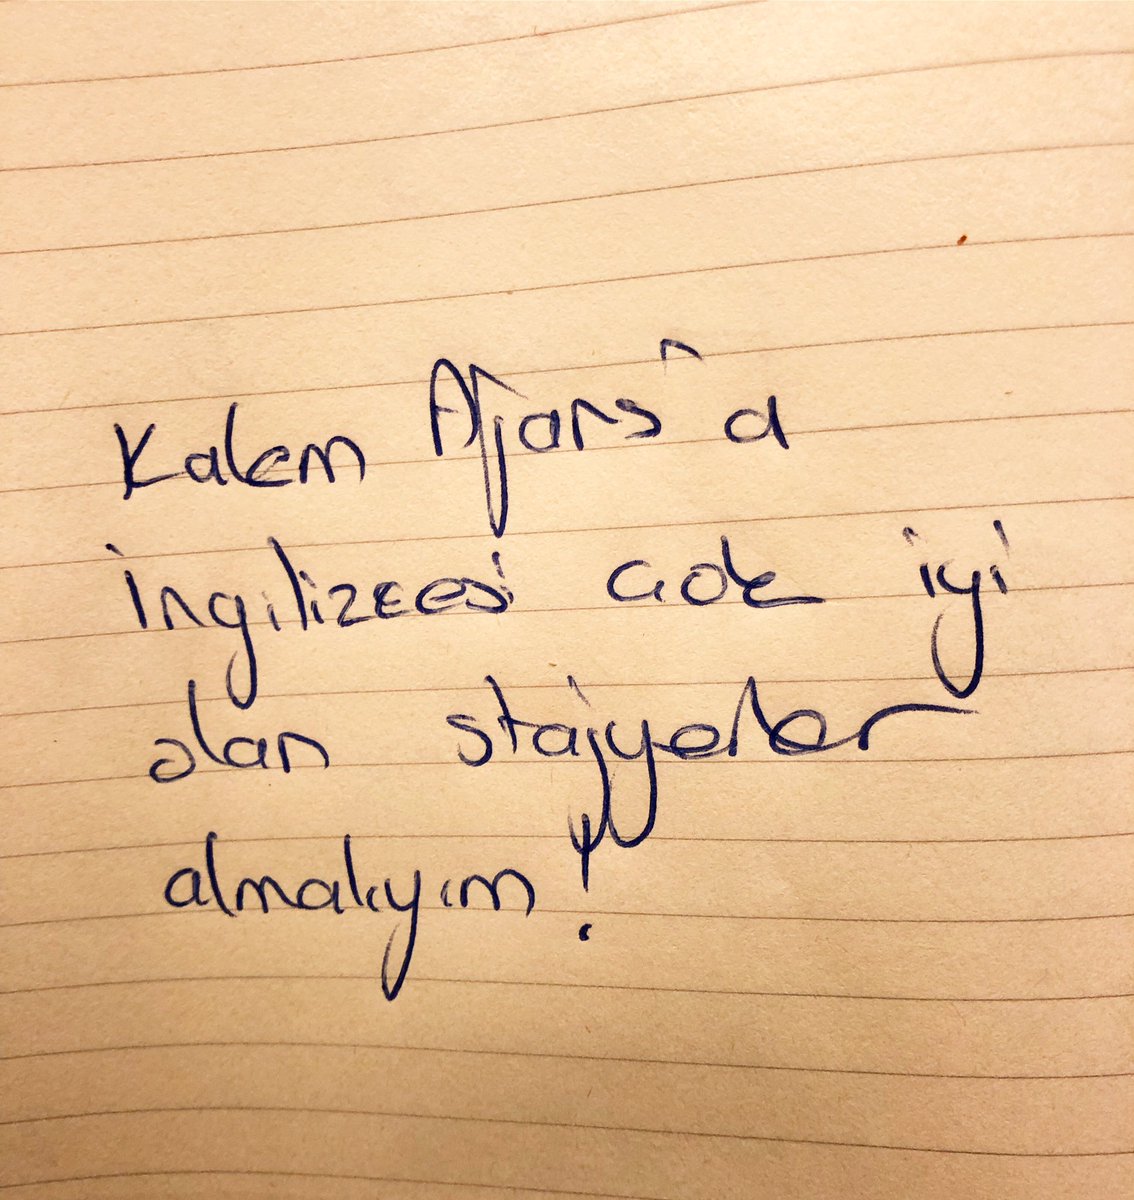 Kalem Ajans'a
İngilizcesi çok iyi
olan stajyerler
almalıyım!